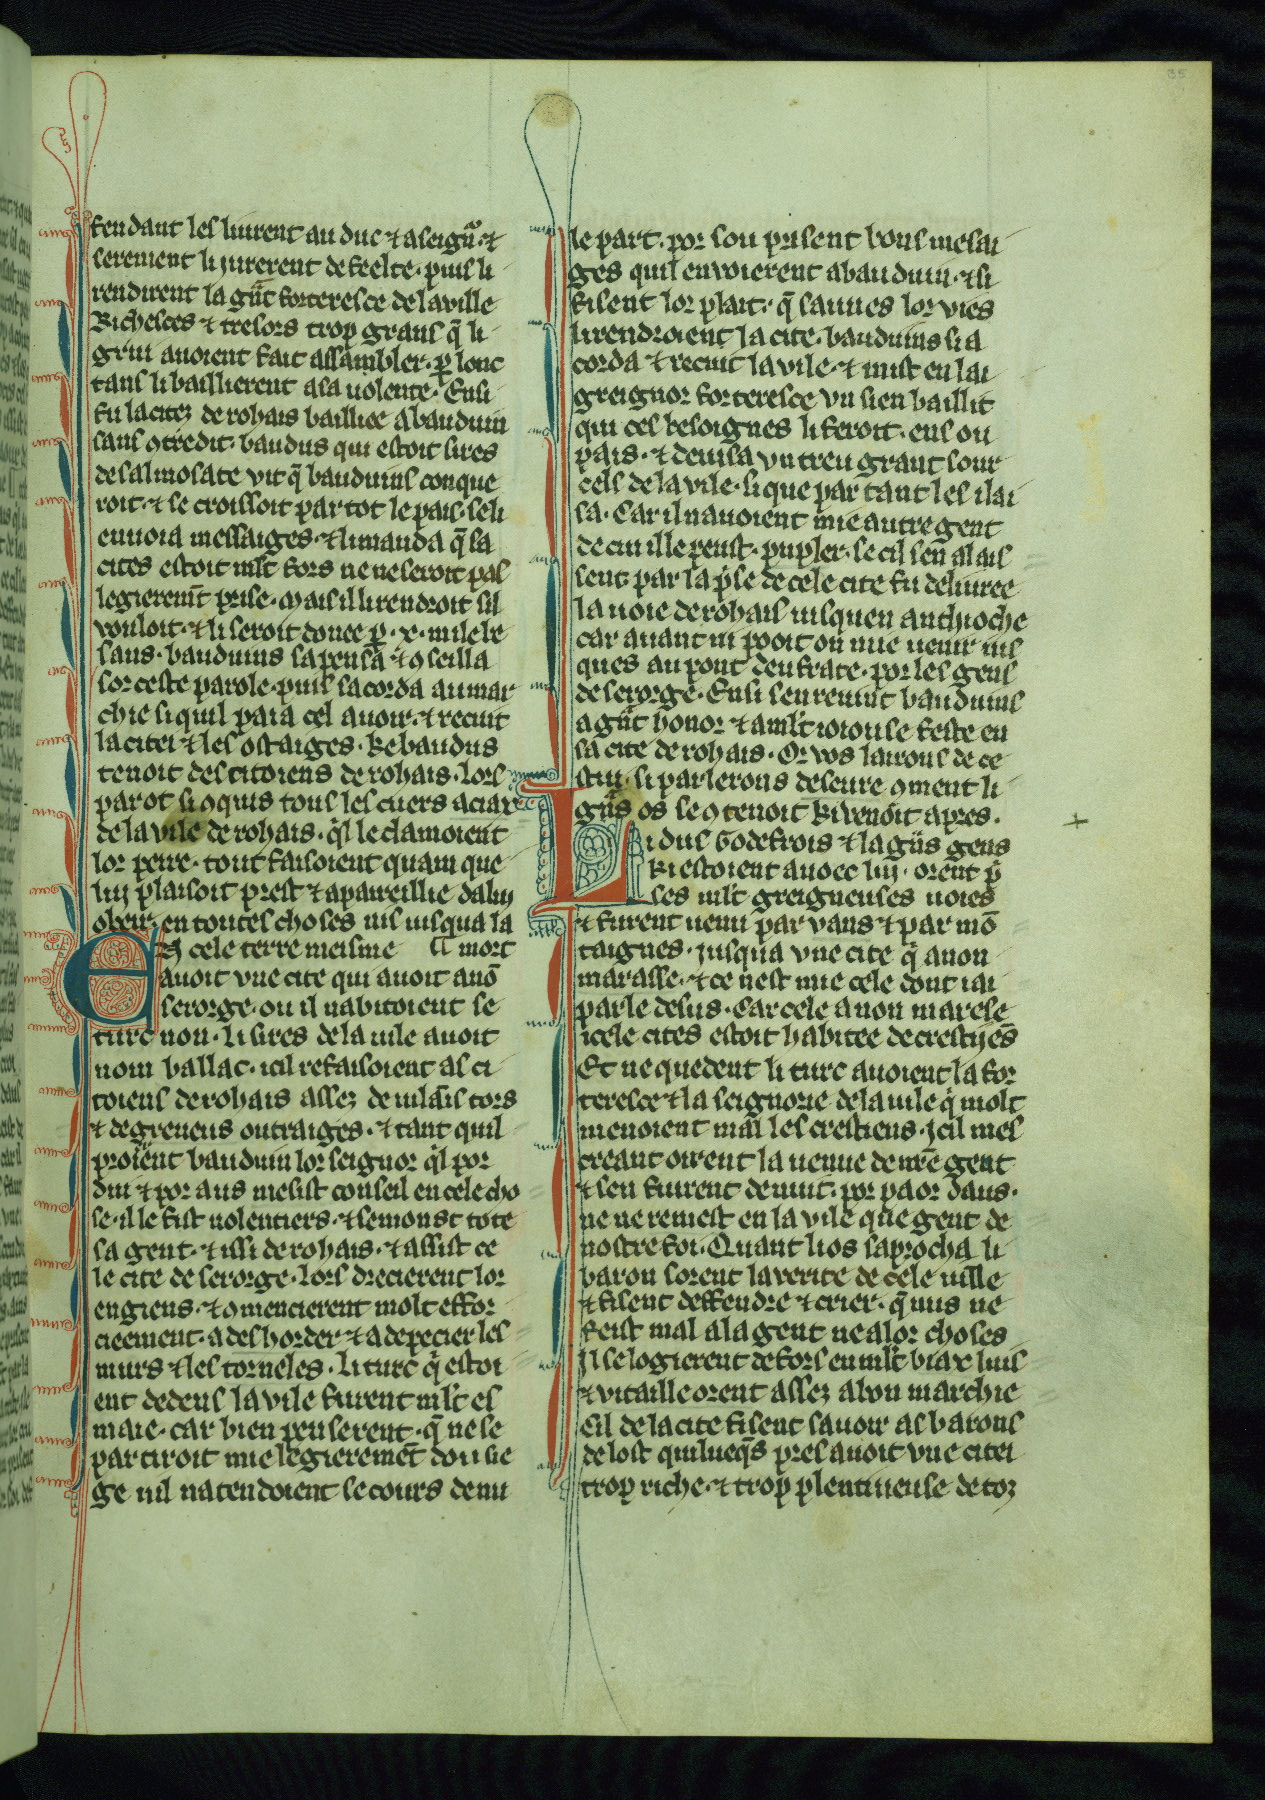 fendant les liurent au duc ⁊ a seign̄r. ⁊
serement li iurerent de feelte. puis li
rendirent la gn̄t forteresce de la ville
Richesces ⁊ tresors trop grans q̄ li
griu auoient fait assambler. p̱ lonc
tans li baillierent a sa uolente. Ensi
fu la citez de rohais bailliee a bauduin
sans ꝯtredit. baudus qui estoit sires
de salmosate vit q̄ bauduins conque
roit. ⁊ se croissoit par tot le pais. se li
enuoia messaiges. ⁊ li manda q̄ sa
cites estoit ml̄t fors ne ne seroit pas
legierem̄t prise. Mais il li rendroit sil
vouloit. ⁊ li seroit donee p̱ .x. mile be
sans. bauduins sa pensa ⁊ ꝯseilla
sor ceste parole. puis sacorda au mar
chie si quil paia cel auoir. ⁊ recuit
la citei ⁊ les ostaiges. ke baudus
tenoit des citoiens de rohais. Lors
par ot si ꝯquis tous les cuers a ciax
de la vile de rohais. ql̄ le clamoient
lor peire. tout faisoient quan que
luj plaisoit prest ⁊ apareillie daluj
obeir en toutes choses nis iusqua la
¶ mort
En cele terre meisme
auoit vne cite qui auoit anō
serorge. ou il nabitoient se
turc non. Li sires de la uile auoit
nom ballac. icil refaisoient as ci
toiens de rohais assez de uilāis tors
⁊ de greueus outraiges. ⁊ tant quil
proïent bauduin lor seignor ql̄ por
diu ⁊ por aus mesist conseil en cele cho
se. ille fist uolentiers. ⁊ semonst tote
sa gent. ⁊ issi de rohais. ⁊ assist ce
le cite de serorge. Lors drecierent lor
engiens. ⁊ ꝯmencierent molt effor
cieement. a desborder ⁊ a depecier les
murs ⁊ les torneles. Li turc q̄ estoi
ent dedens la vile furent ml̄t es
maie. car bien penserent. q̄ ne se
partiroit mie legieremēt dou sie
ge nil natendoient secours de nu
le part. por sou prisent bons mesai
ges quil envoierent a bauduin. ⁊ si
fisent lor plait. q̄ sauues lor vies
li rendroient la cite. bauduins si a
corda ⁊ recuit la vile. ⁊ mist en lai
greignor forteresce vn sien baillit
qui ces besoignes li feroit. ens ou
pais. ⁊ deuisa vn treu grant sour
cels de la vile. si que par tant les i lai
sa. Car il nauoient mie autre gent
de cui ille peust. pupler. se cil sen alais
sent par la p̄se de cele cite fu deliuree
la uoie de rohais iusquen anthioche
car auant ni pooit on mie uenir ius
ques au pont deufrate. por les gens
de serorge. Ensi sen reuint bauduins
a gn̄t honor ⁊ a ml̄t ioiouse feste en
sa cite de rohais. Or vos lairons de ce
stui. si parlerons deseure ꝯment li
gn̄s os se ꝯtenoit ki venoit apres.
Li dus Godefrois ⁊ la gn̄s gens
ki estoient auoec luj. orent p̄
ses ml̄t greigneuses uoies
⁊ furent uenu par vaus ⁊ par mō
taignes. jusqua vne cite q̄ a non
marasse. ⁊ ce nest mie cele dont iai
parle desus. Car cele a non marese
icele cites estoit habitee de crestijēs
Et ne quedent li turc auoient la for
teresce ⁊ la seignorie de la uile q̄ molt
menoient mal les crestiens. Jcil mes
creant oirent la uenue de nr̄e gent
⁊ sen fuirent de nuit. por paor daus.
ne ne remest en la vile que gent de
nostre foi. Quant li os saprocha li
baron sorent la verite de cele uille
⁊ fisent deffendre ⁊ crier. q̄ nus ne
feist mal a la gent ne a lor choses
Jl se logierent defors en ml̄t biax luis
⁊ vitaille orent assez a bon marchie
Cil de la cite fisent sauoir as barons
de lost quilueq̄s pres auoit vne citei
trop riche. ⁊ trop plentiueuse de toz